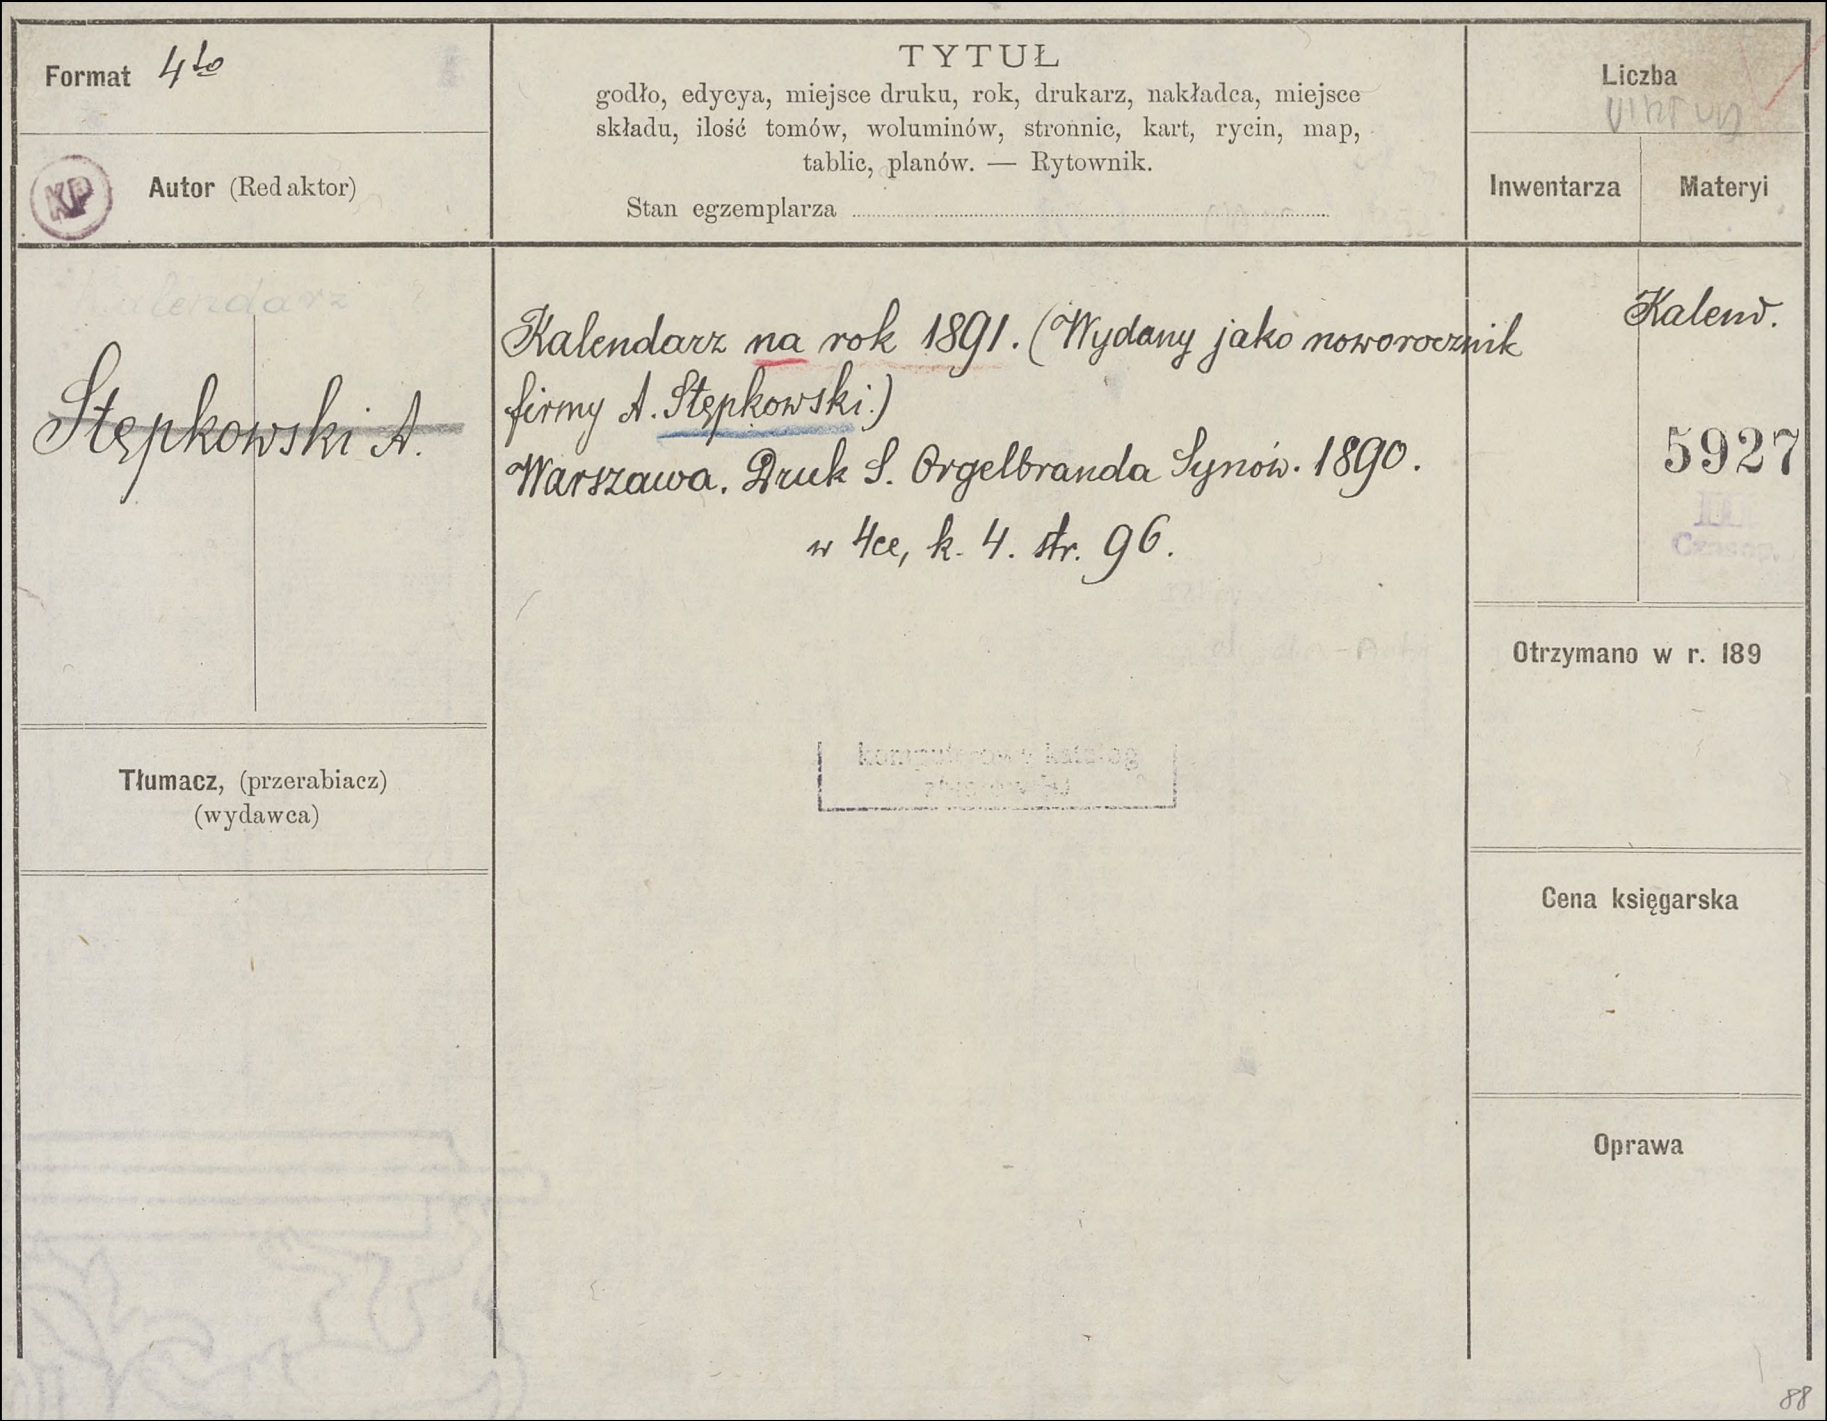 Format 4to
KP
Autor (Redaktor)
TYTUŁ
godło, edycya, miejsce druku, rok, drukarz, nakładca, miejsce
składu, ilość tomów, woluminów, stronnic, kart, rycin, map,
tablic, planów. — Rytownik.
Stan egzemplarza
Liczba
Inwentarza
Materyi
Kalendarz
Stępkowski A.
Kalendarz na rok 1891. (Wydany jako noworocznik
firmy A. Stępkowski.)
Warszawa. Druk S. Orgelbranda Synów. 1890.
w 4ce, k. 4. str. 96.
Kalend.
5927
III
Czasop.
Otrzymano w r. 189
komputerowy katalog
Tłumacz, (przerabiacz)
(wydawca)
Cena księgarska
Oprawa
88